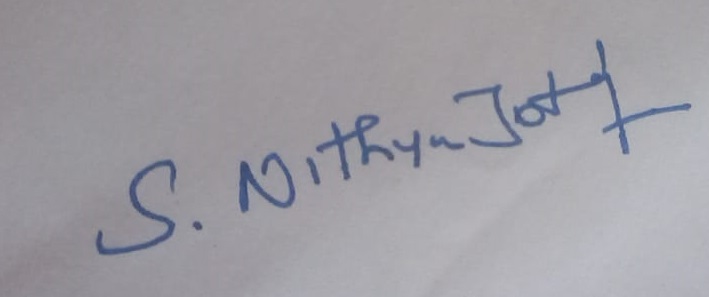 S. Nithya Joty